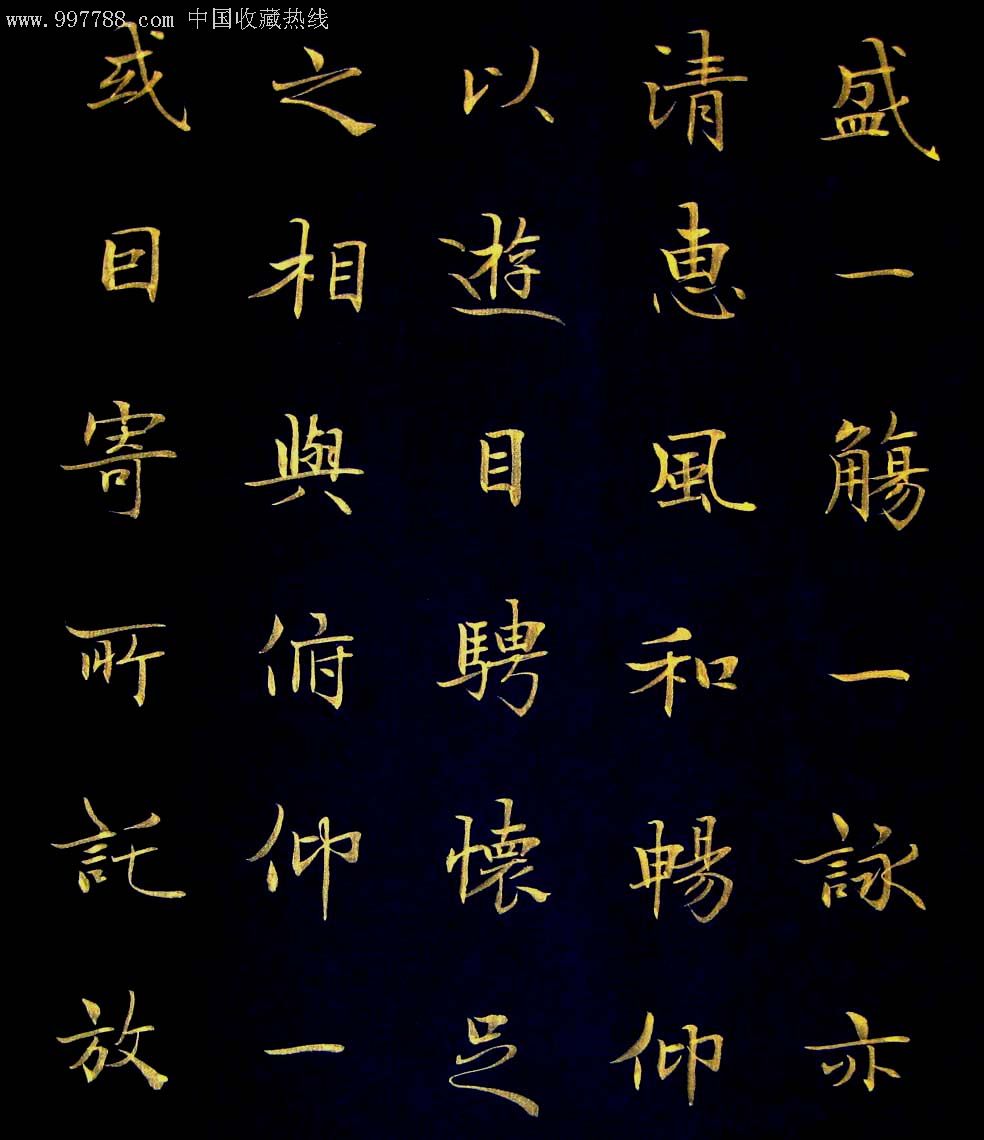 www.997788.com 中国收藏热线
盛一觴一詠亦
清惠風和暢仰
以遊目騁懷足
之相與俯仰一
或因寄所託放